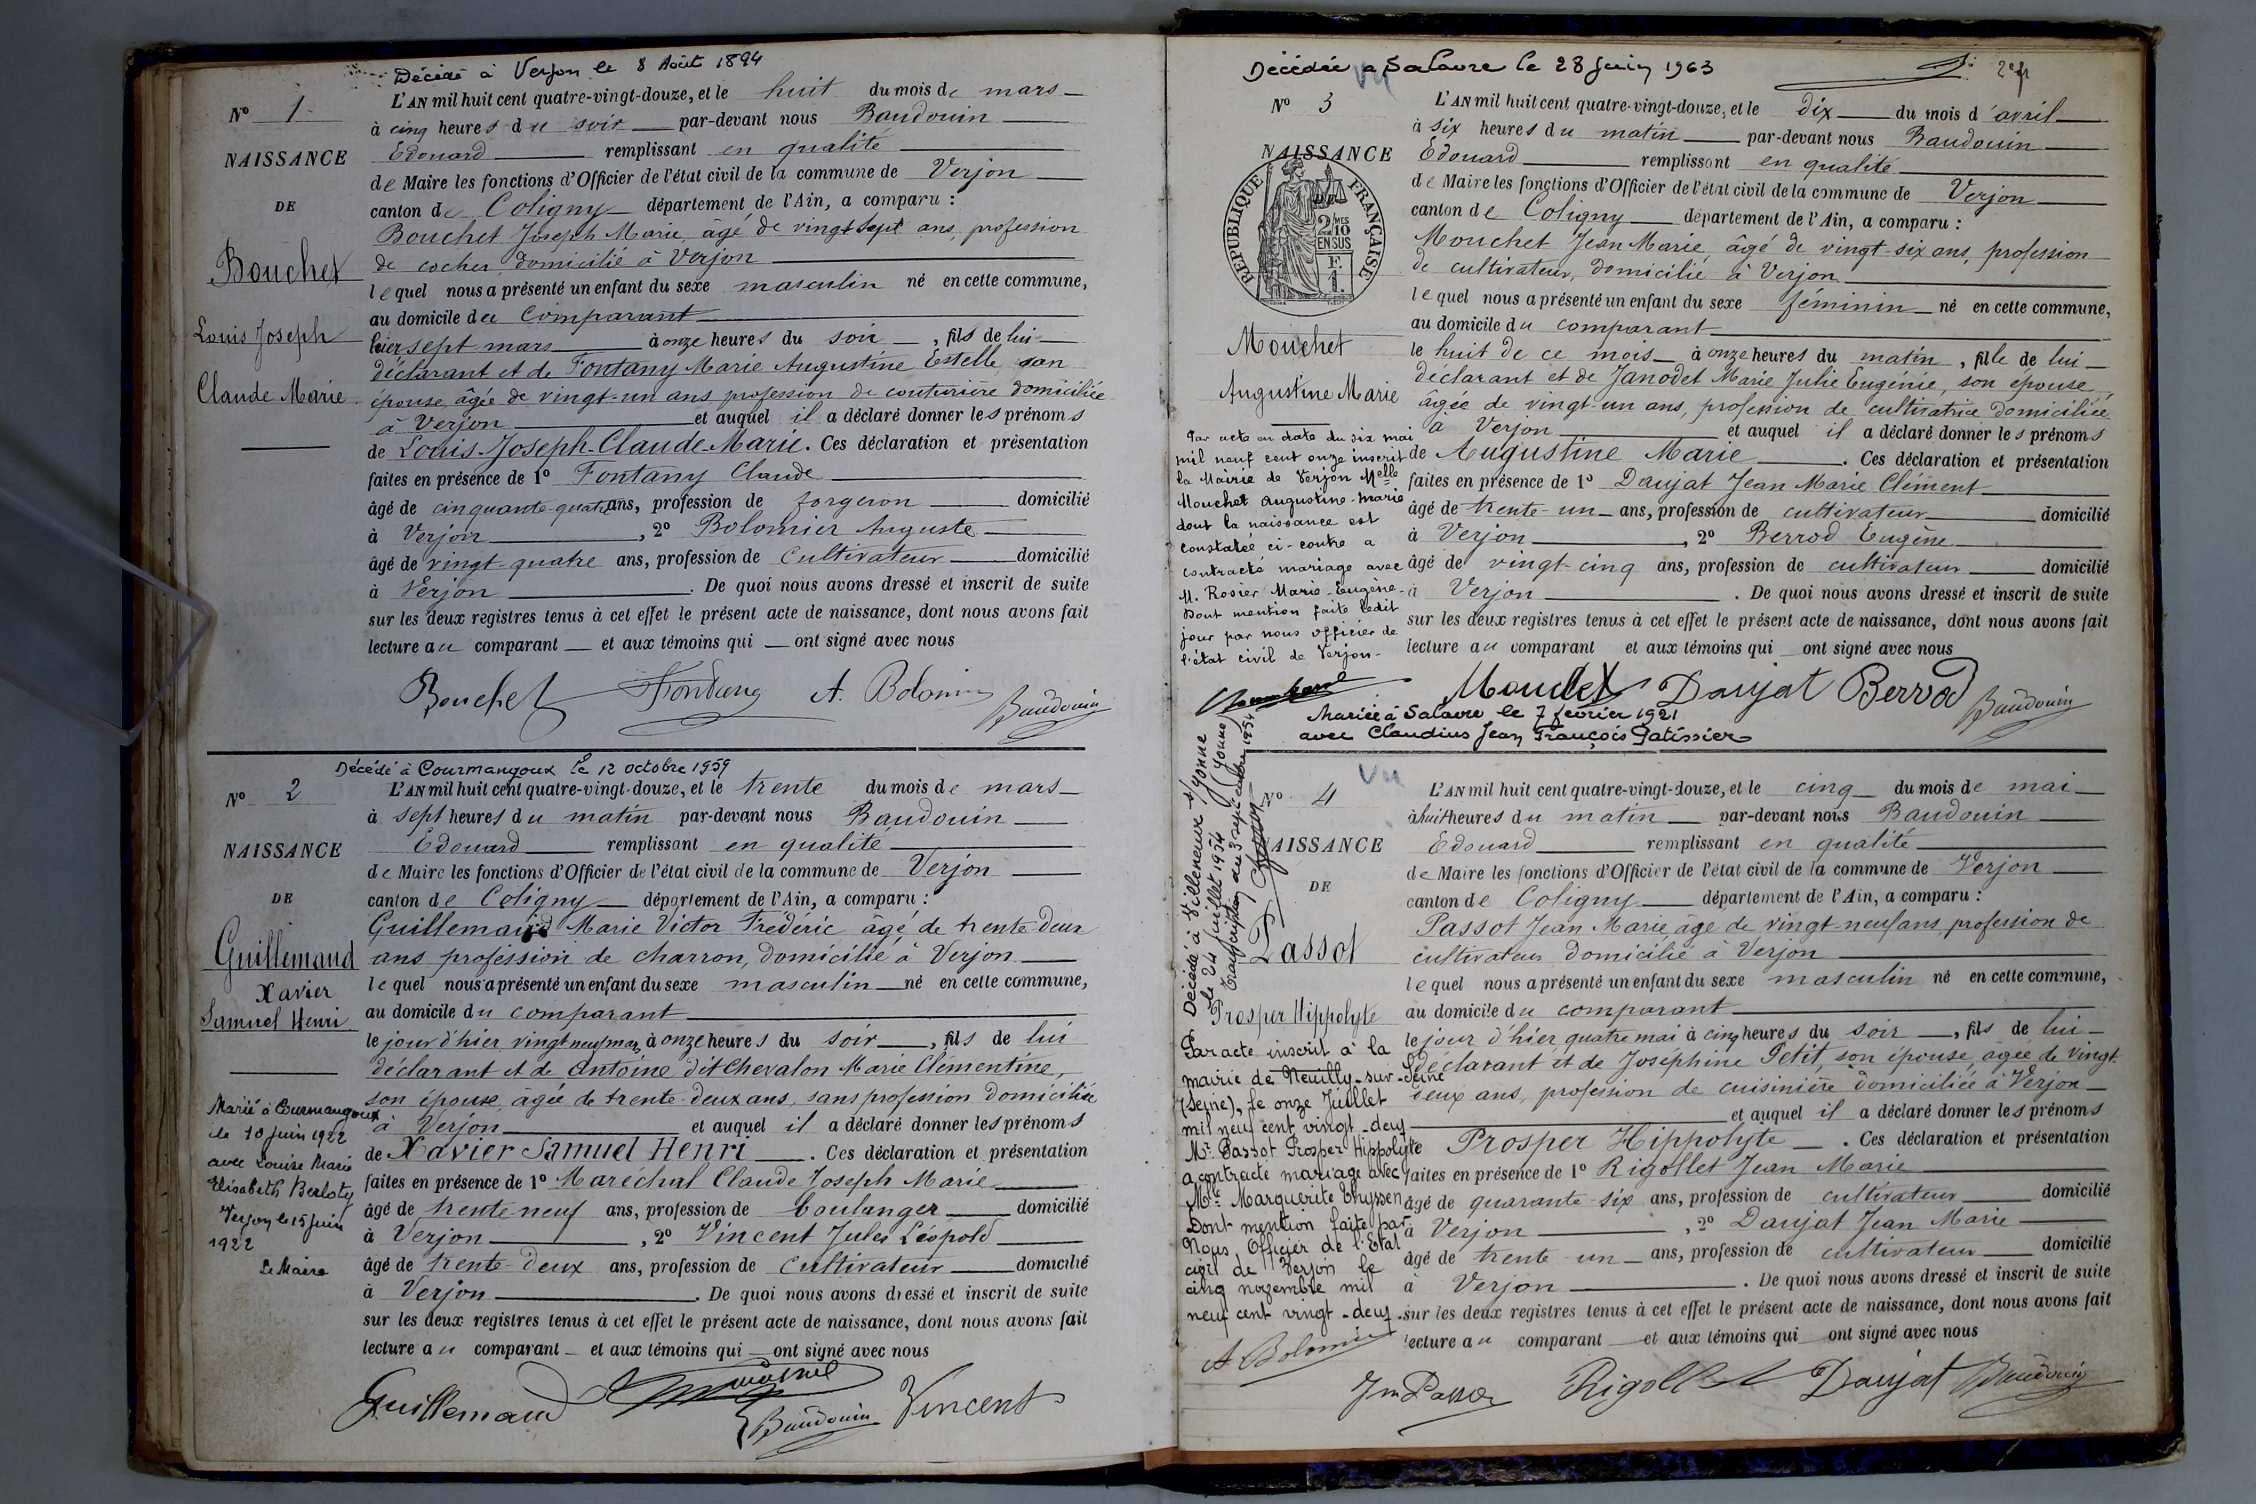 Décédé à Verjon le 8 Août 1894
N° 1
NAISSANCE
DE
Bouchet
Louis Joseph
Claude Marie
L'AN mil huit cent quatre-vingt-douze, et le huit du mois de mars
à cinq heures du soir par-devant nous Baudouin
Edouard remplissant en qualité
de Maire les fonctions d'Officier de l'état civil de la commune de Verjon
canton de Coligny département de l'Ain, a comparu :
Bouchet Joseph Marie, âgé de vingt sept ans, profession
de cocher, domicilié à Verjon
lequel nous a présenté un enfant du sexe masculin né en cette commune,
au domicile du comparant
hier sept mars à onze heures du soir, fils de lui
déclarant et de Fontany Marie Augustine Estelle, son
épouse âgée de vingt-un ans profession de couturière domiciliée
à Verjon et auquel il a déclaré donner les prénoms
de Louis-Joseph-Claude-Marie. Ces déclaration et présentation
faites en présence de 1° Fontany Claude
âgé de cinquante-quatre ans, profession de forgeron domicilié
à Verjon, 2° Bolomier Auguste
âgé de vingt-quatre ans, profession de cultivateur domicilié
à Verjon. De quoi nous avons dressé et inscrit de suite
sur les deux registres tenus à cet effet le présent acte de naissance, dont nous avons fait
lecture au comparant et aux témoins qui ont signé avec nous
Bouchet A. Bolomier Baudouin
Décédé à Courmangoux le 12 octobre 1959
N° 2
NAISSANCE
DE
Guillemaud
Xavier
Samuel Henri
L'AN mil huit cent quatre-vingt-douze, et le trente du mois de mars
à sept heures du matin par-devant nous Baudouin
Edouard remplissant en qualité
de Maire les fonctions d'Officier de l'état civil de la commune de Verjon
canton de Coligny département de l'Ain, a comparu :
Guillemaud Marie Victor Frédéric âgé de trente-deux
ans profession de charron, domicilié à Verjon
lequel nous a présenté un enfant du sexe masculin né en cette commune,
au domicile du comparant
le jour d'hier vingt neuf mars à onze heures du soir, fils de lui
déclarant et de Antoine dit Chevalon Marie Clémentine,
son épouse, âgée de trente-deux ans, sans profession domiciliée
à Verjon et auquel il a déclaré donner les prénoms
de Xavier Samuel Henri. Ces déclaration et présentation
faites en présence de 1° Maréchal Claude Joseph Marie
âgé de trente-neuf ans, profession de boulanger domicilié
à Verjon, 2° Vincent Jules Léopold
âgé de trente-deux ans, profession de cultivateur domicilié
à Verjon. De quoi nous avons dressé et inscrit de suite
sur les deux registres tenus à cet effet le présent acte de naissance, dont nous avons fait
lecture au comparant et aux témoins qui ont signé avec nous
Marié à Courmangoux
le 10 juin 1922
avec Louise Marie
Elisabeth Berloty
Verjon, le 15 juin
1922
Le Maire
Guillemaud Baudouin Vincent
Décédée à Salavre le 28 juin 1963
N° 3
NAISSANCE
RÉPUBLIQUE FRANÇAISE
2/10MES
EN SUS
F.
1.
Mouchet
Augustine Marie
L'AN mil huit cent quatre-vingt-douze, et le dix du mois d'avril
à six heures du matin par-devant nous Baudouin
Edouard remplissant en qualité
de Maire les fonctions d'Officier de l'état civil de la commune de Verjon
canton de Coligny département de l'Ain, a comparu :
Mouchet Jean Marie, âgé de vingt-six ans, profession
de cultivateur, domicilié à Verjon
lequel nous a présenté un enfant du sexe féminin né en cette commune,
au domicile du comparant
le huit de ce mois à onze heures du matin, fille de lui
déclarant et de Janodet Marie Julie Eugénie, son épouse,
âgée de vingt-un ans, profession de cultivatrice domiciliée
à Verjon et auquel il a déclaré donner les prénoms
de Augustine Marie. Ces déclaration et présentation
faites en présence de 1° Daujat Jean Marie Clément
âgé de trente-un ans, profession de cultivateur domicilié
à Verjon, 2° Berrod Eugène
âgé de vingt-cinq ans, profession de cultivateur domicilié
à Verjon. De quoi nous avons dressé et inscrit de suite
sur les deux registres tenus à cet effet le présent acte de naissance, dont nous avons fait
lecture au comparant et aux témoins qui ont signé avec nous
Par acte en date du six mai
mil neuf cent onze inscrit
la Mairie de Verjon Melle
Mouchet Augustine-Marie
dont la naissance est
constatée ci-contre a
contracté mariage avec
M. Rosier Marie-Eugène-
Dont mention faite ledit
jour par nous officier de
l'état civil de Verjon-
Mouchet Daujat Berrod Baudouin
Mariée à Salavre le 7 février 1921
avec Claudius Jean François Patissier
Vu
N° 4
NAISSANCE
DE
Passot
Prosper Hippolyte
L'AN mil huit cent quatre-vingt-douze, et le cinq du mois de mai
à huit heures du matin par-devant nous Baudouin
Edouard remplissant en qualité
de Maire les fonctions d'Officier de l'état civil de la commune de Verjon
canton de Coligny département de l'Ain, a comparu :
Passot Jean Marie âgé de vingt-neuf ans, profession de
cultivateur domicilié à Verjon
lequel nous a présenté un enfant du sexe masculin né en cette commune,
au domicile du comparant
le jour d'hier quatre mai à cinq heures du soir, fils de lui
déclarant et de Josephine Petit, son épouse, âgée de vingt
deux ans, profession de cuisinière domiciliée à Verjon
et auquel il a déclaré donner les prénoms
Prosper Hippolyte. Ces déclaration et présentation
faites en présence de 1° Rigollet Jean Marie
âgé de quarante-six ans, profession de cultivateur domicilié
à Verjon, 2° Daujat Jean Marie
âgé de trente-un ans, profession de cultivateur domicilié
à Verjon. De quoi nous avons dressé et inscrit de suite
sur les deux registres tenus à cet effet le présent acte de naissance, dont nous avons fait
lecture au comparant et aux témoins qui ont signé avec nous
Décédé à Villeneuve s/ Yonne (Yonne)
le 24 juillet 1954
Par acte inscrit à la
mairie de Neuilly-sur-Seine
(Seine), le onze Juillet
mil neuf cent vingt-deux
Mr Passot Prosper Hippolyte
a contracté mariage avec
Melle Marguerite Thyssen
Dont mention faite par
Nous, Officier de l'Etat
civil de Verjon le
cinq novembre mil
neuf cent vingt-deux.
A Bolomier
Jm Passot Rigollet Daujat Baudouin